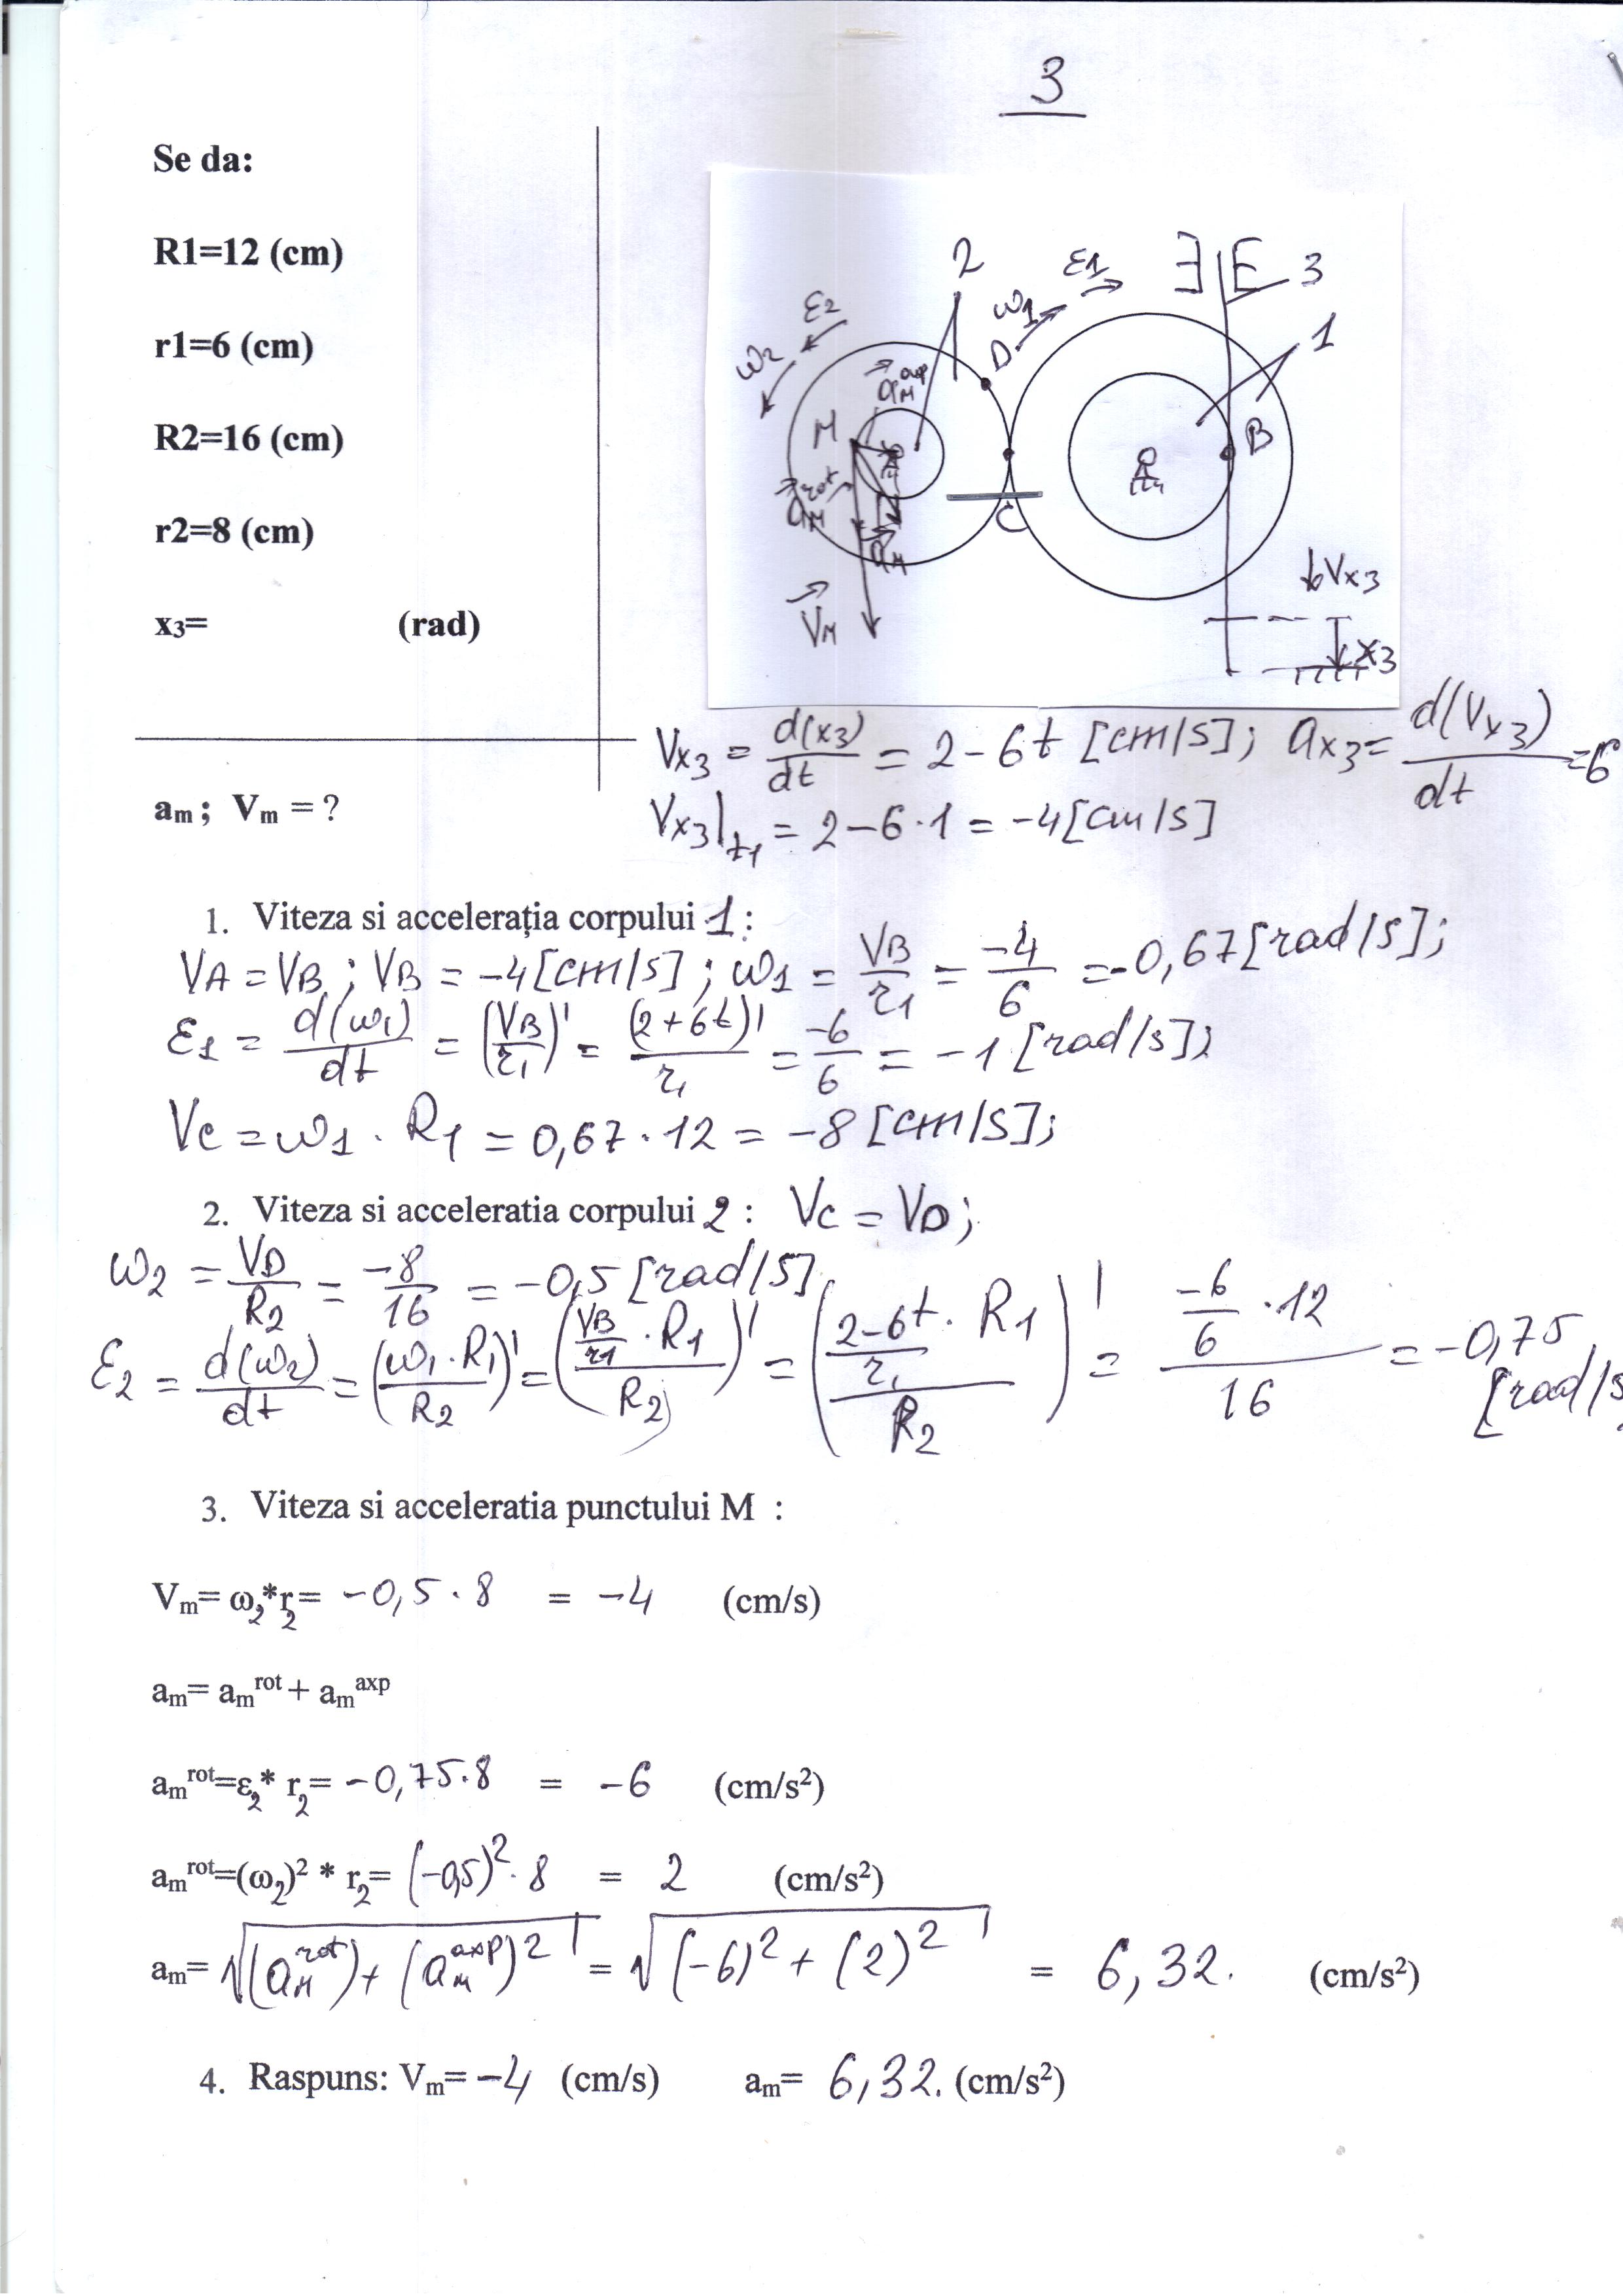 3
Se da:
R1=12 (cm)
r1=6 (cm)
R2=16 (cm)
r2=8 (cm)
x3= (rad)
2
ε1
ω1
D
E 3
1
ε2
ω2
a_M^axp
M
B
a_M^rot
a_M
C
V_M
Vx3
x3
Vx3 = d(x3)/dt = 2-6t [cm/s]; ax3 = d(Vx3)/dt = 6
am ; Vm = ?
Vx3|t1 = 2-6·1 = -4[cm/s]
1. Viteza si accelerația corpului 1 :
VA = VB ; VB = -4[cm/s] ; ω1 = VB/r1 = -4/6 = -0,67[rad/s];
ε1 = d(ω1)/dt = (VB/r1)' = (2+6t)'/r1 = -6/6 = -1 [rad/s];
Vc = ω1 · R1 = 0,67·12 = -8 [cm/s];
2. Viteza si acceleratia corpului 2 : Vc = VD;
ω2 = VD/R2 = -8/16 = -0,5 [rad/s]
ε2 = d(ω2)/dt = (ω1·R1/R2)' = (VB/r1 · R1/R2)' = (2-6t/r1 · R1/R2)' = -6/6 · 12/16 = -0,75 [rad/s
3. Viteza si acceleratia punctului M :
Vm= ω2*r2= -0,5 · 8 = -4 (cm/s)
am= am^rot + am^axp
am^rot=ε2* r2= -0,75·8 = -6 (cm/s²)
am^rot=(ω2)² * r2= (-0,5)²·8 = 2 (cm/s²)
am= √(a_M^rot)+(a_M^axp)² = √(-6)²+(2)² = 6,32. (cm/s²)
4. Raspuns: Vm= -4 (cm/s) am= 6,32. (cm/s²)